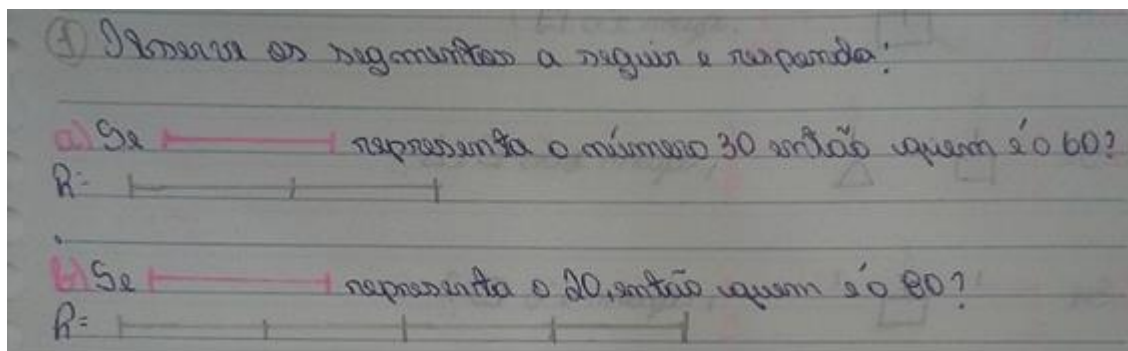 ① Observe os segmentos a seguir e responda:
a) Se representa o número 30 então quem é o 60?
R=
b) Se representa o 20, então quem é o 80?
R=